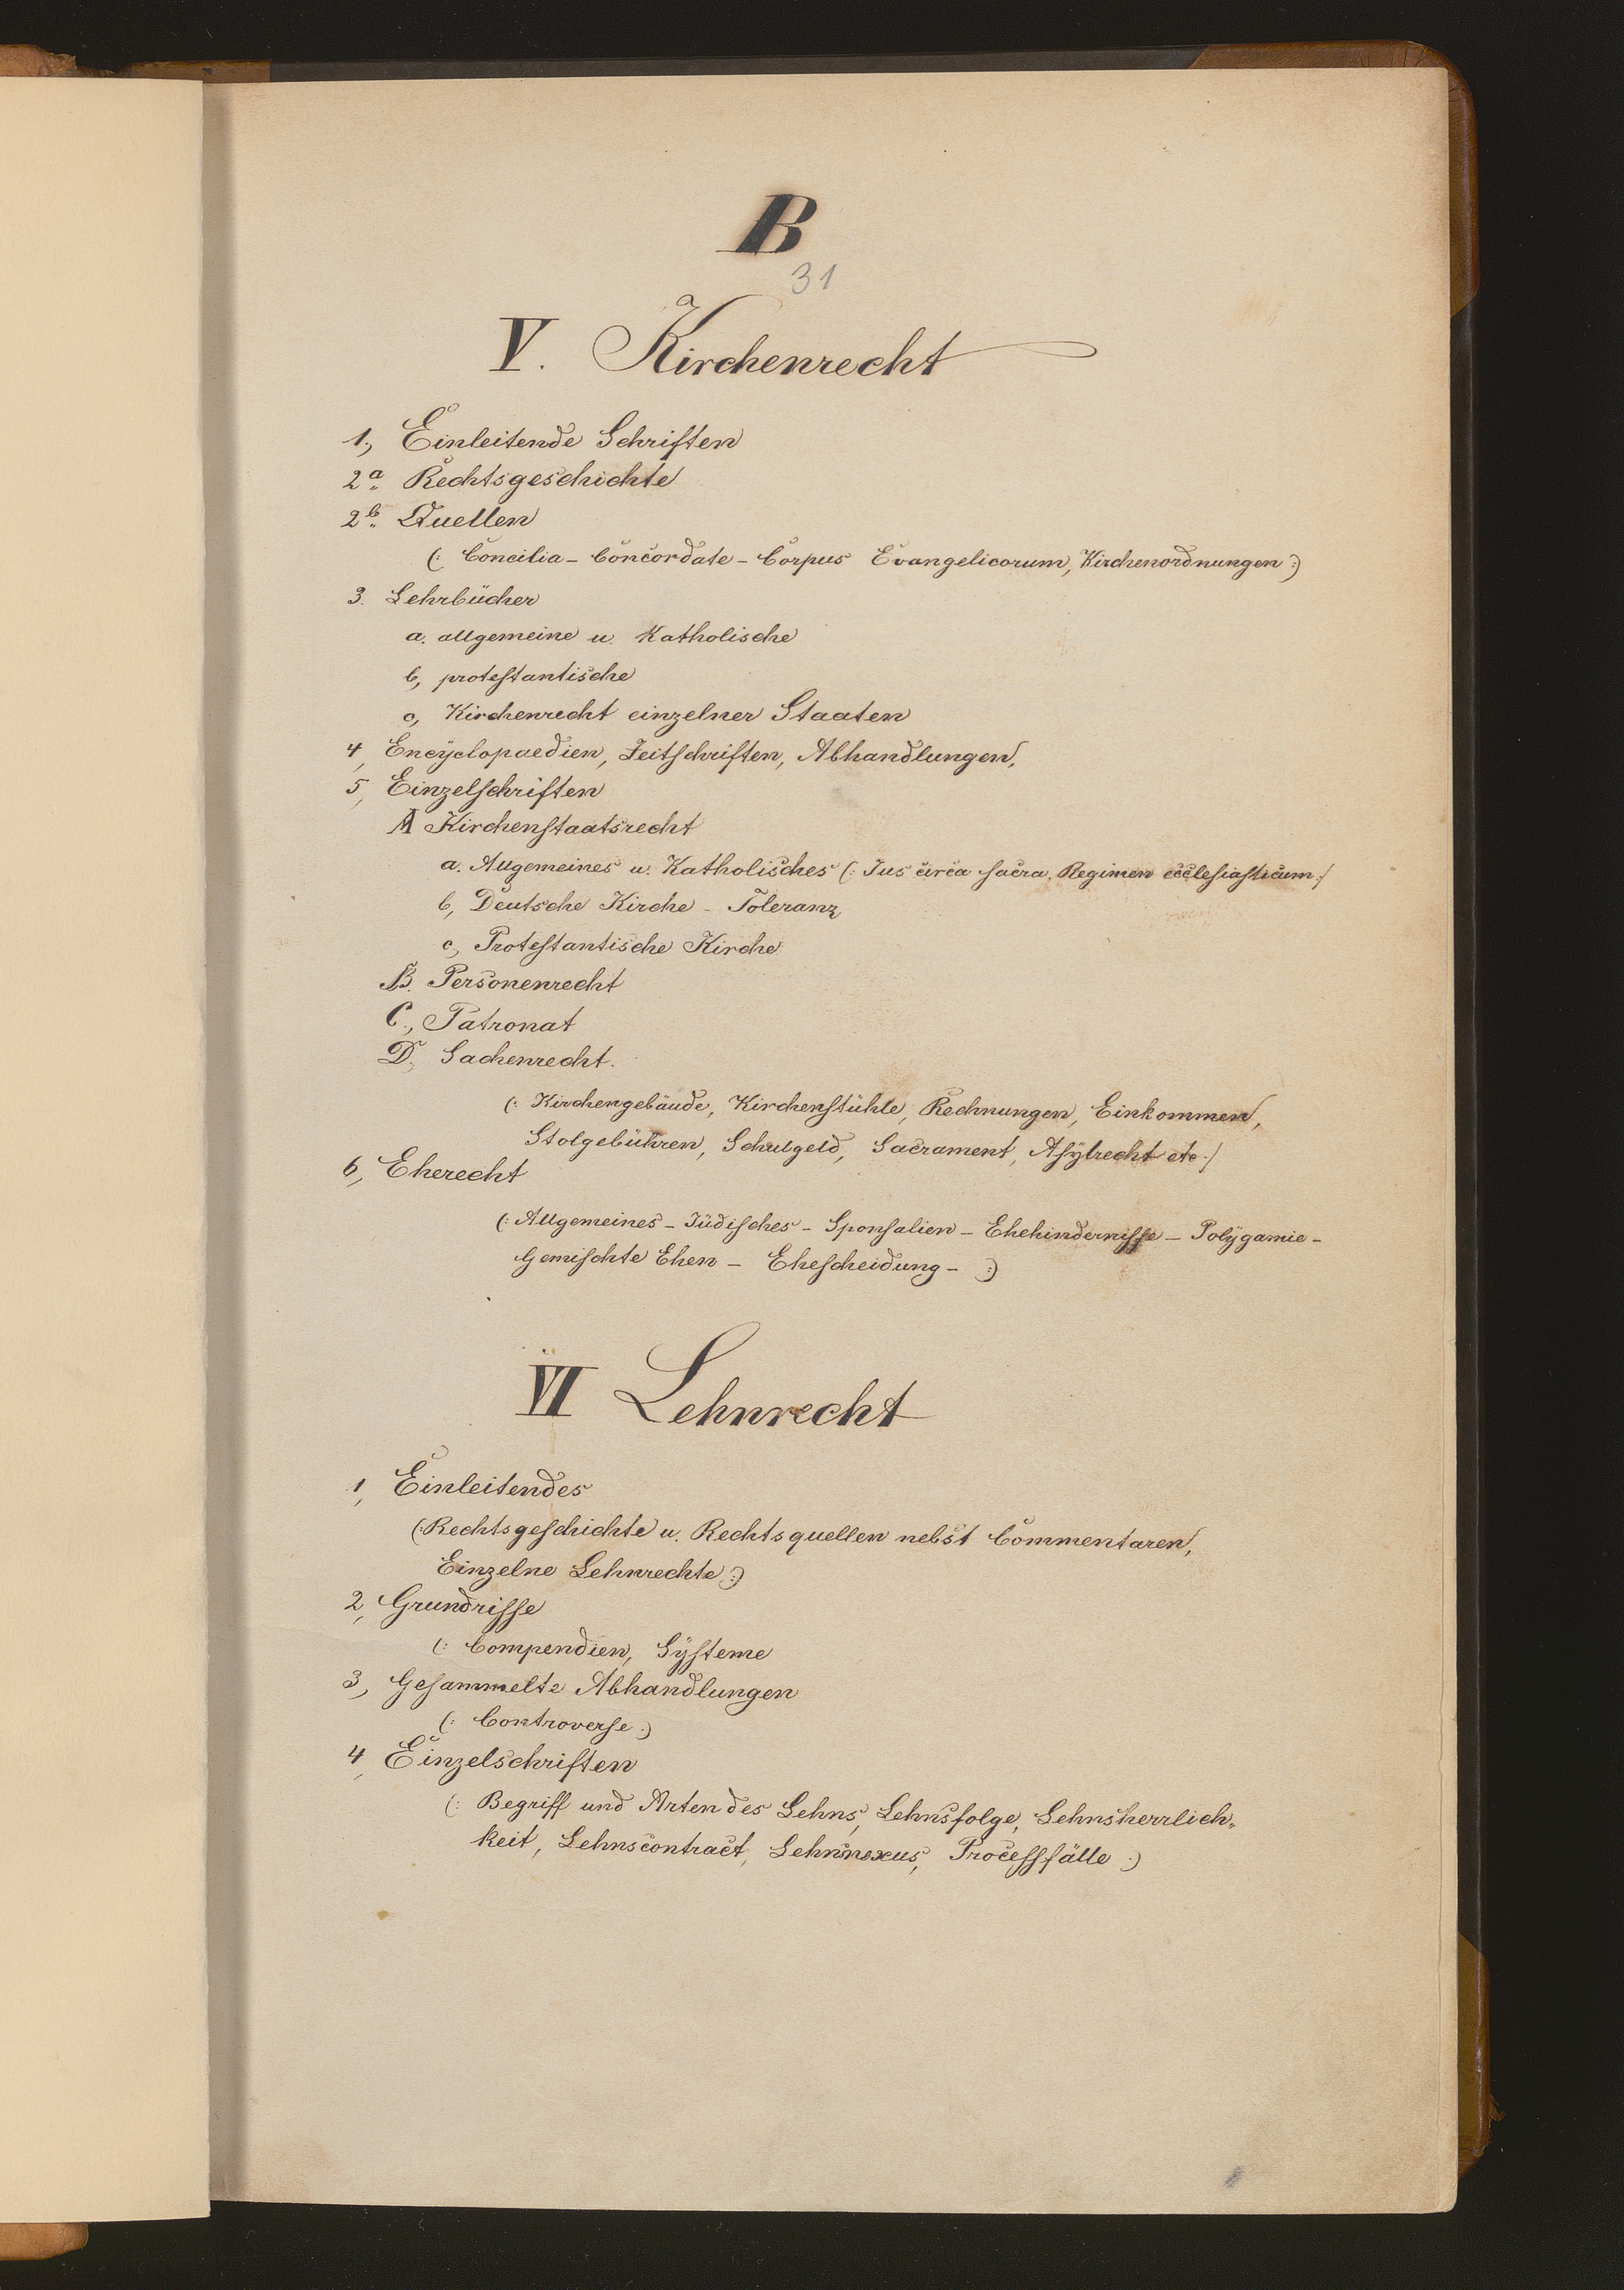 B
31
V. Kirchenrecht
1., Einleitende Schriften
2a. Rechtsgeschichte
2b. Quellen
(: Concilia - Concordate - Corpus Evangelicorum, Kirchenordnungen :)
3. Lehrbücher
a. allgemeine u. Katholische
b, protestantische
c, Kirchenrecht einzelner Staaten
4, Encyclopaedien, Zeitschriften, Abhandlungen,
5, Einzelschriften
A Kirchenstaatsrecht
a. Allgemeines u. Katholisches (: Jus circa sacra, Regimen ecclesiasticum :/
b, Deutsche Kirche - Toleranz
c, Protestantische Kirche
B. Personenrecht
C., Patronat
D, Sachenrecht.
(: Kirchengebäude, Kirchenstühle, Rechnungen, Einkommen,
Stolgebühren, Schulgeld, Sacrament, Asylrecht etc./
6, Eherecht
(: Allgemeines - Jüdisches - Sponsalien - Ehehindernisse - Polygamie -
Gemischte Ehen - Ehescheidung - :)
VI Lehnrecht
1, Einleitendes
(: Rechtsgeschichte u. Rechtsquellen nebst Commentaren,
Einzelne Lehnrechte :)
2, Grundrisse
(: Compendien, Systeme
3, Gesammelte Abhandlungen
(: Controverse :)
4, Einzelschriften
(: Begriff und Arten des Lehns, Lehnsfolge, Lehnsherrlich-
keit, Lehnscontract, Lehnsnexus, Processfälle :)